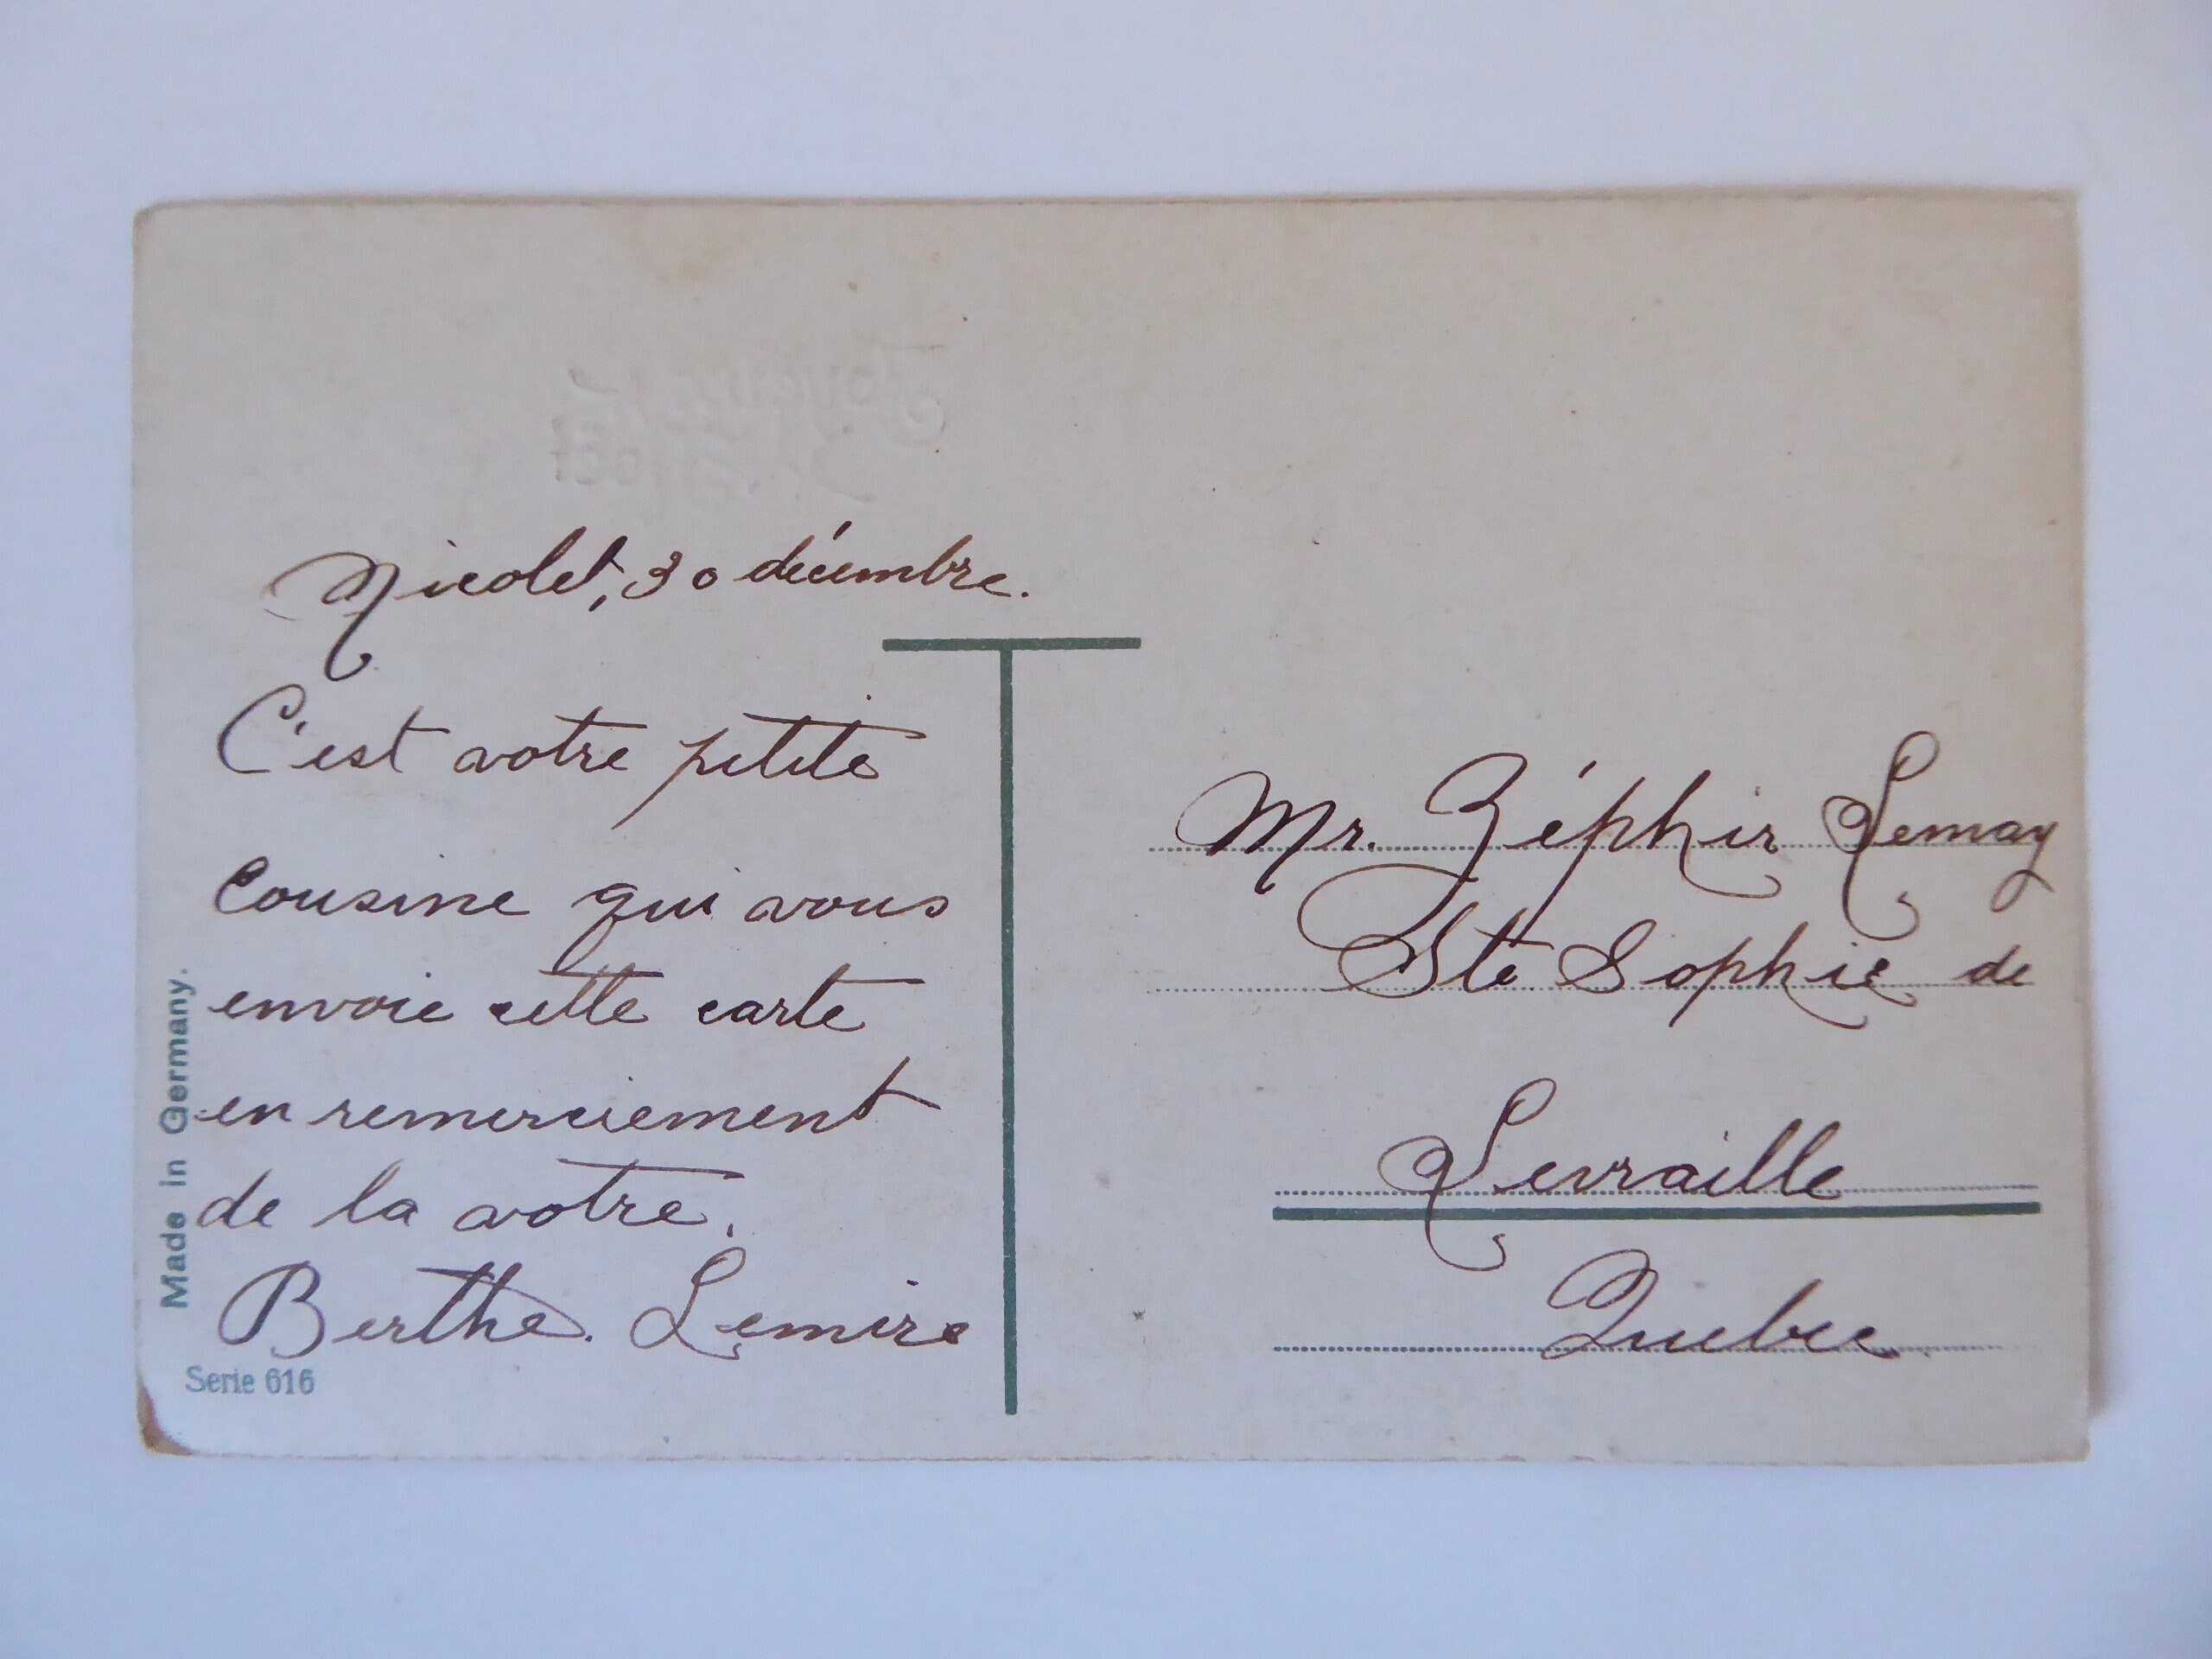 Nicolet, 30 décembre.
C'est votre petite
Cousine qui vous
envoie cette carte
en remerciement
de la votre.
Berthe. Lemire
Made in Germany.
Serie 616
Mr. Zéphir Lemay
Ste Sophie de
Levraille
Quebec